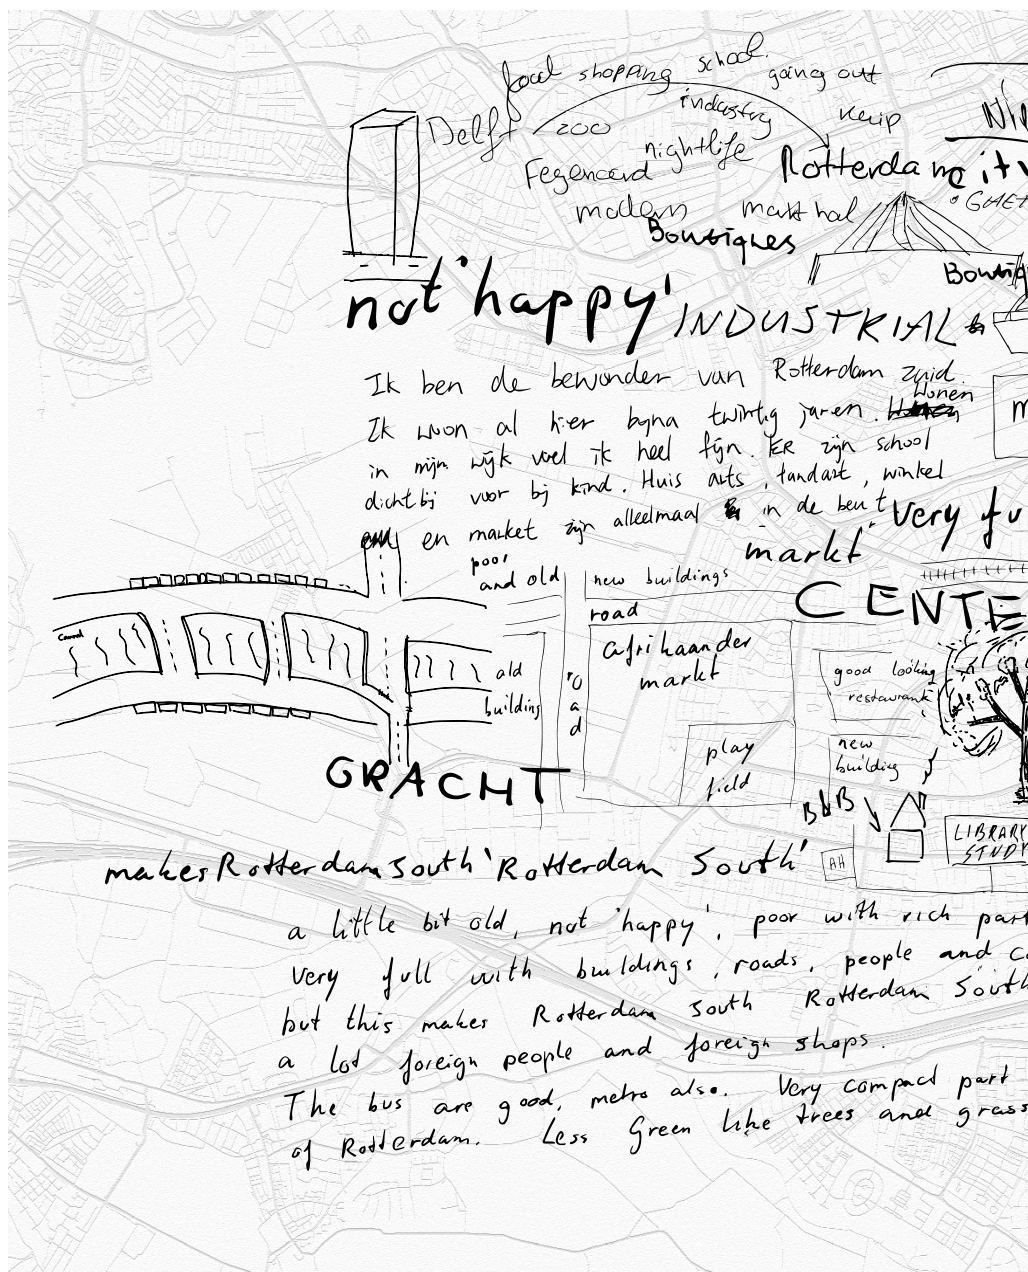 food shopping school.
going out
industry
Kuip
Delft
zoo
nightlife
Feyenoord
Rotterdam
modern
markthal
Boutiques
not 'happy'
INDUSTRIAL
Ik ben de bewonder van Rotterdam zuid.
Wonen
Ik woon al hier bijna twintig jaren.
in mijn wijk voel ik heel fijn. ER zijn school
dichtbij voor bij kind. Huis arts, tandart, winkel
en market zijn alleelmaal in de beurt
very fu
markt
poor
and old
new buildings
CENTE
road
afrikaander
markt
Canal
old
building
road
good looking
restaurant
play
field
new
building
GRACHT
B&B
LIBRARY
STUDY
AH
makes Rotterdam South 'Rotterdam South'
a little bit old, not 'happy', poor with rich part
very full with buildings, roads, people and
but this makes Rotterdam South Rotterdam South
a lot foreign people and foreign shops.
The bus are good, metro also. Very compact part
of Rotterdam. Less Green like trees and grass